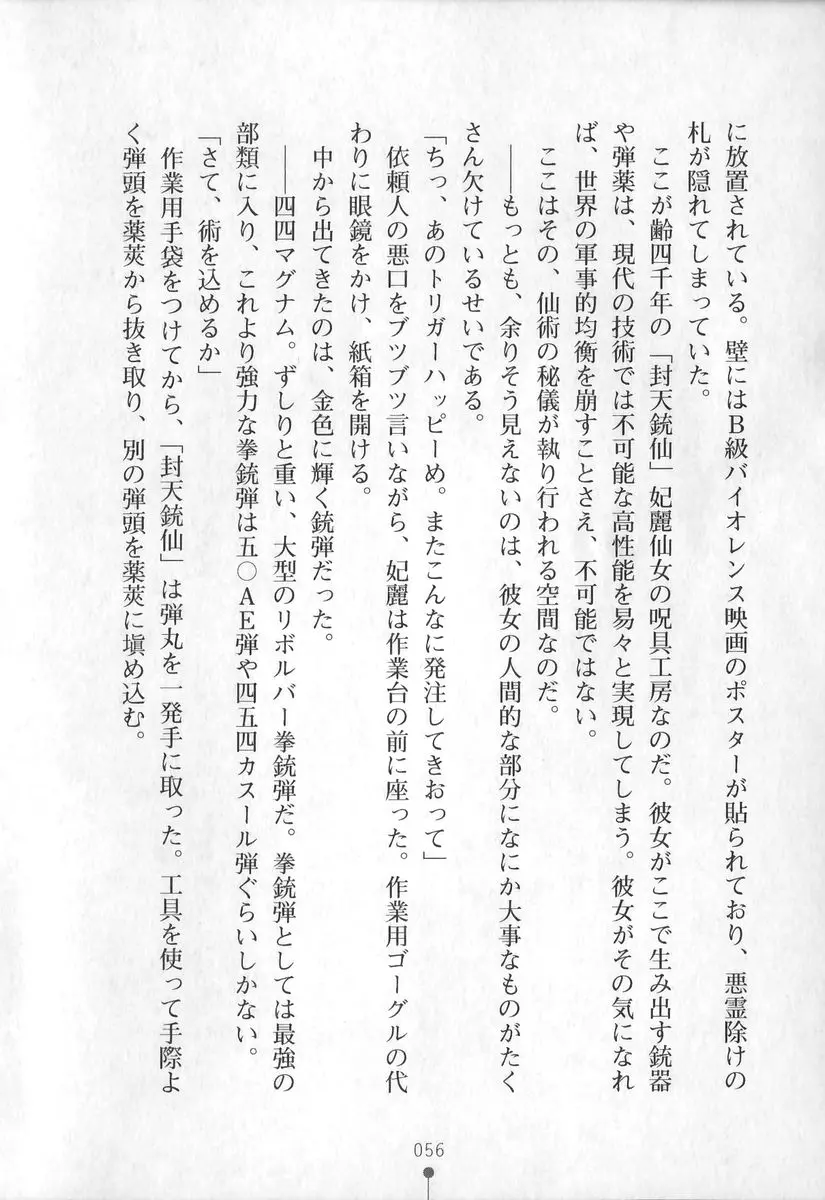 に放置されている。壁にはB級バイオレンス映画のポスターが貼られており、悪霊除けの
札が隠れてしまっていた。
ここが齢四千年の「封天銃仙」妃麗仙女の呪具工房なのだ。彼女がここで生み出す銃器
や弾薬は、現代の技術では不可能な高性能を易々と実現してしまう。彼女がその気になれ
ば、世界の軍事的均衡を崩すことさえ、不可能ではない。
ここはその、仙術の秘儀が執り行われる空間なのだ。
――もっとも、余りそう見えないのは、彼女の人間的な部分になにか大事なものがたく
さん欠けているせいである。
「ちっ、あのトリガーハッピーめ。またこんなに発注してきおって」
依頼人の悪口をブツブツ言いながら、妃麗は作業台の前に座った。作業用ゴーグルの代
わりに眼鏡をかけ、紙箱を開ける。
中から出てきたのは、金色に輝く銃弾だった。
――四四マグナム。ずしりと重い、大型のリボルバー拳銃弾だ。拳銃弾としては最強の
部類に入り、これより強力な拳銃弾は五〇AE弾や四五四カスール弾ぐらいしかない。
「さて、術を込めるか」
作業用手袋をつけてから、「封天銃仙」は弾丸を一発手に取った。工具を使って手際よ
く弾頭を薬莢から抜き取り、別の弾頭を薬莢に塡め込む。
056